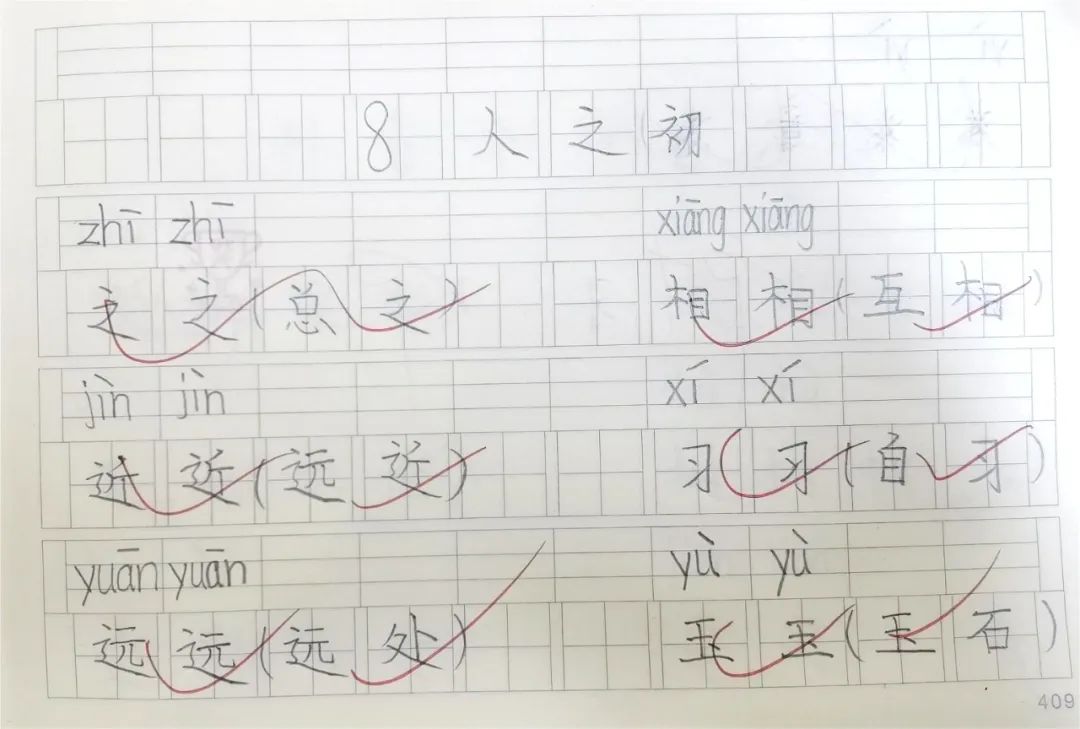 8 人之初
zhī zhī xiāng xiāng
之 之(总之) 相 相(互相)
jìn jìn xí xí
近 近(远近) 习 习(自习)
yuān yuān yù yù
远 远(远处) 玉 玉(玉石)
409